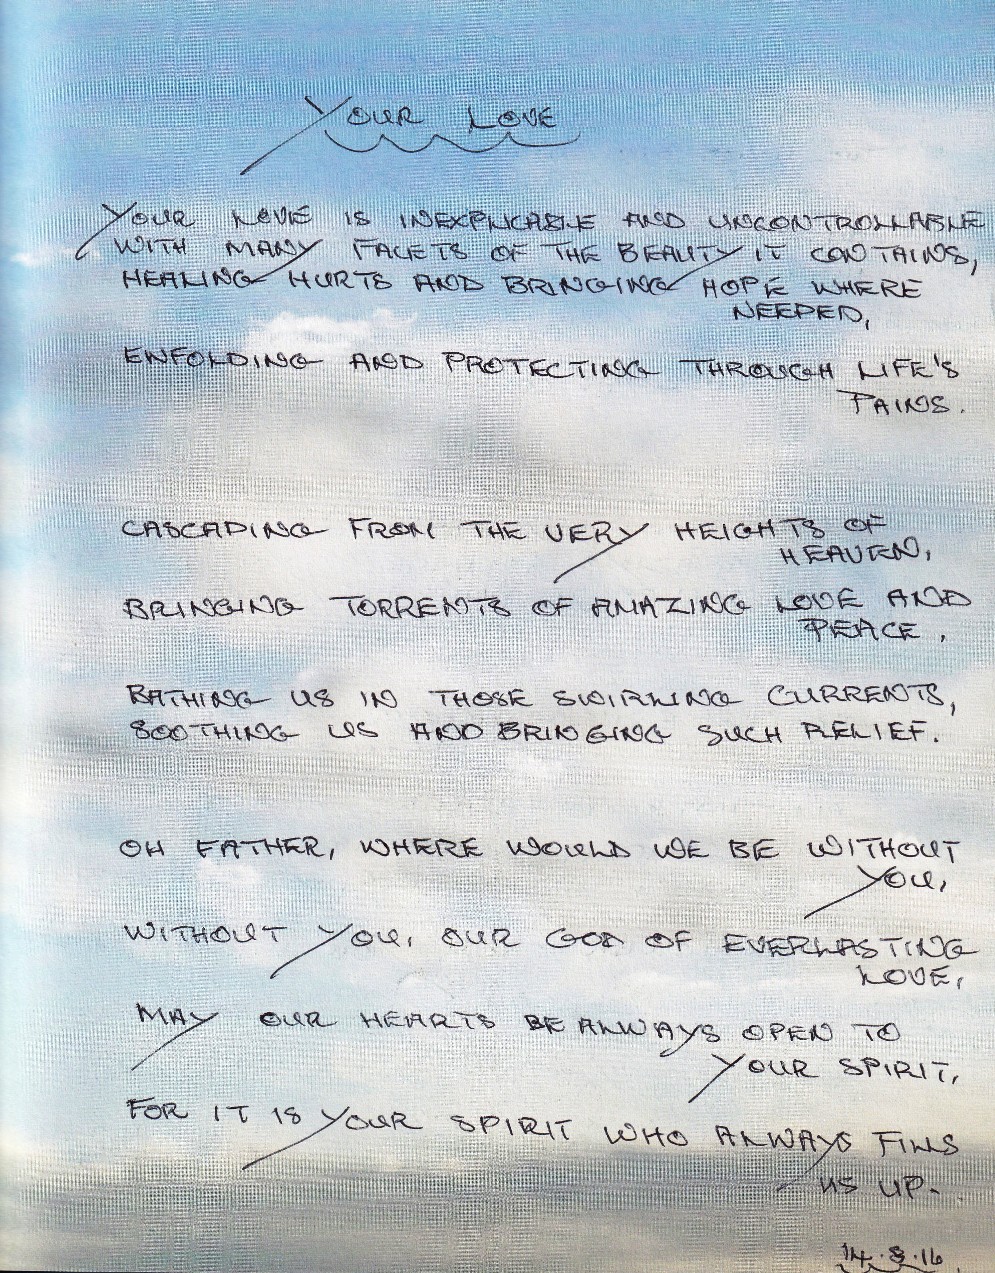 YOUR LOVE
YOUR LOVE IS INEXPLICABLE AND UNCONTROLLABLE
WITH MANY FACETS OF THE BEAUTY IT CONTAINS,
HEALING HURTS AND BRINGING HOPE WHERE
NEEDED,
ENFOLDING AND PROTECTING THROUGH LIFE'S
PAINS.
CASCADING FROM THE VERY HEIGHTS OF
HEAVEN,
BRINGING TORRENTS OF AMAZING LOVE AND
PEACE,
BATHING US IN THOSE SWIRLING CURRENTS,
SOOTHING US AND BRINGING SUCH RELIEF.
OH FATHER, WHERE WOULD WE BE WITHOUT
YOU,
WITHOUT YOU, OUR GOD OF EVERLASTING
LOVE,
MAY OUR HEARTS BE ALWAYS OPEN TO
YOUR SPIRIT,
FOR IT IS YOUR SPIRIT WHO ALWAYS FILLS
US UP.
14.8.16